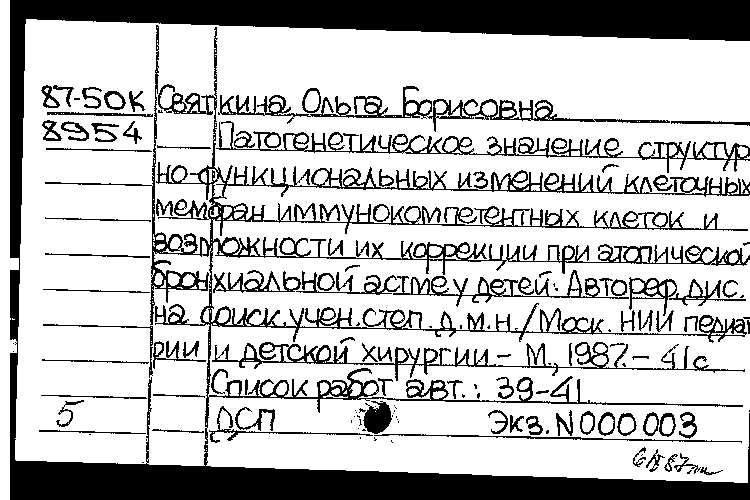 87-50К Святкина, Ольга Борисовна
8954 Патогенетическое значение структур
но-функциональных изменений клеточных
мембран иммунокомпетентных клеток и
возможности их коррекции при атопической
бронхиальной астме у детей: Автореф. дис.
на соиск. учен. степ. д.м.н./Моск. НИИ педиат
рии и детской хирургии - М., 1987. - 41 с.
Список работ авт.: 39-41.
5 ДСП Экз. N 000003